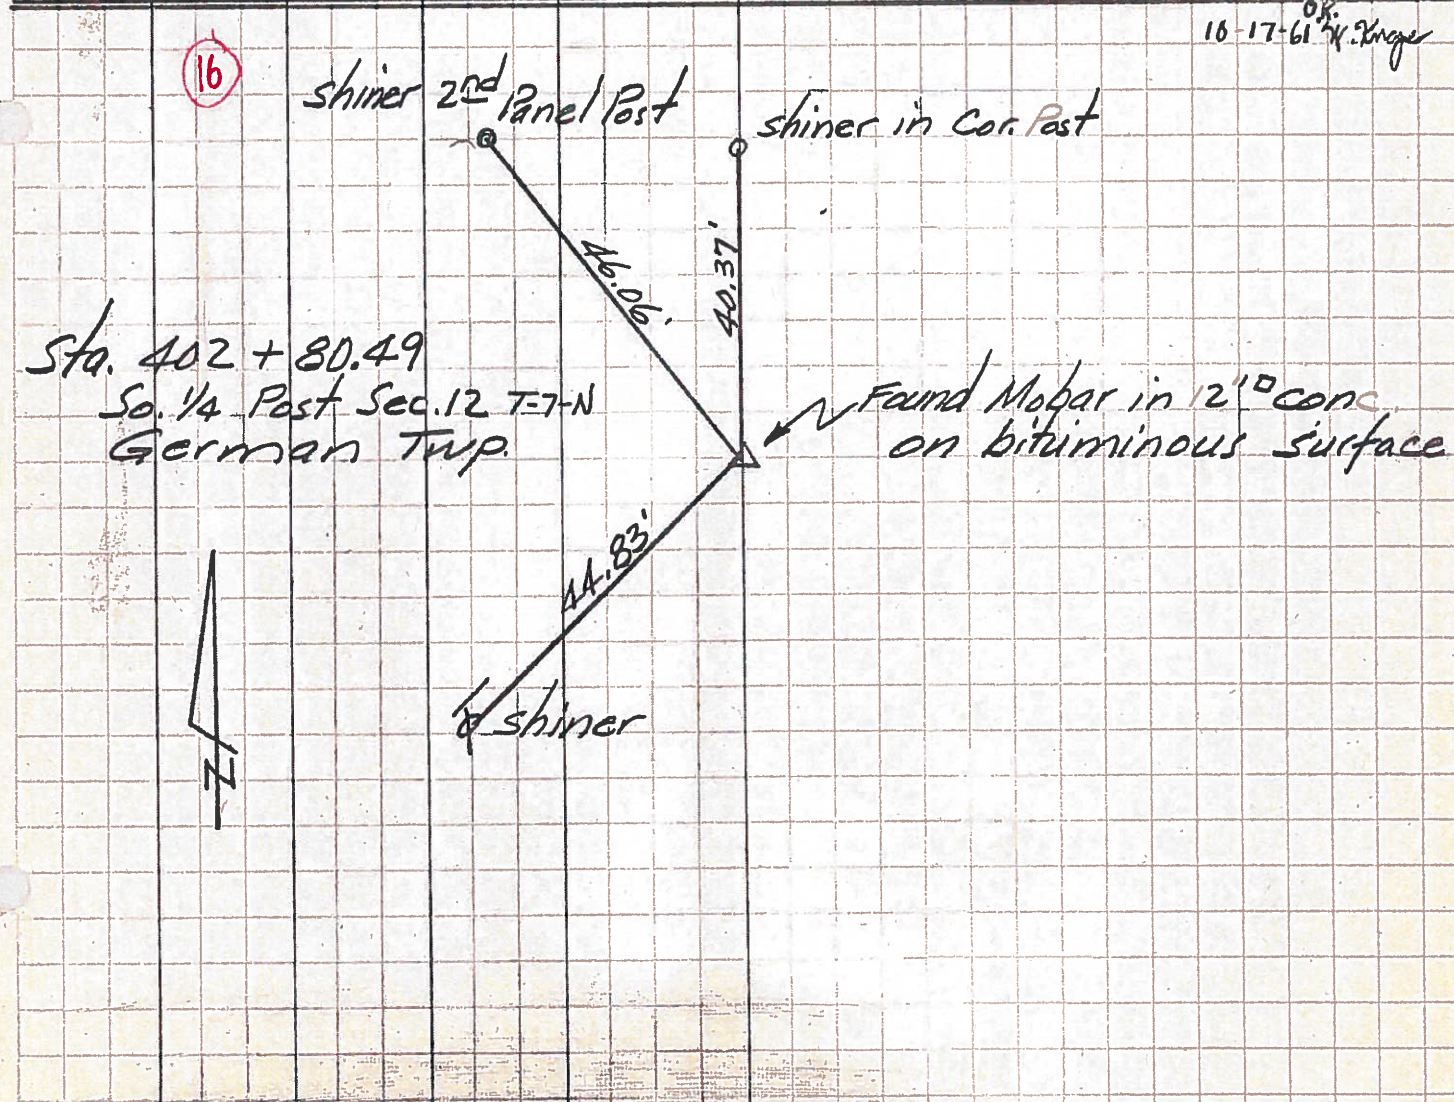 OK.
10-17-61
16
shiner 2nd Panel Post
shiner in Cor. Post
46.06'
40.37'
Sta. 402 + 80.49
So. 1/4 Post Sec. 12 T-7-N
German Twp.
Found Mobar in 12"□ conc.
on bituminous surface
44.83'
shiner
N